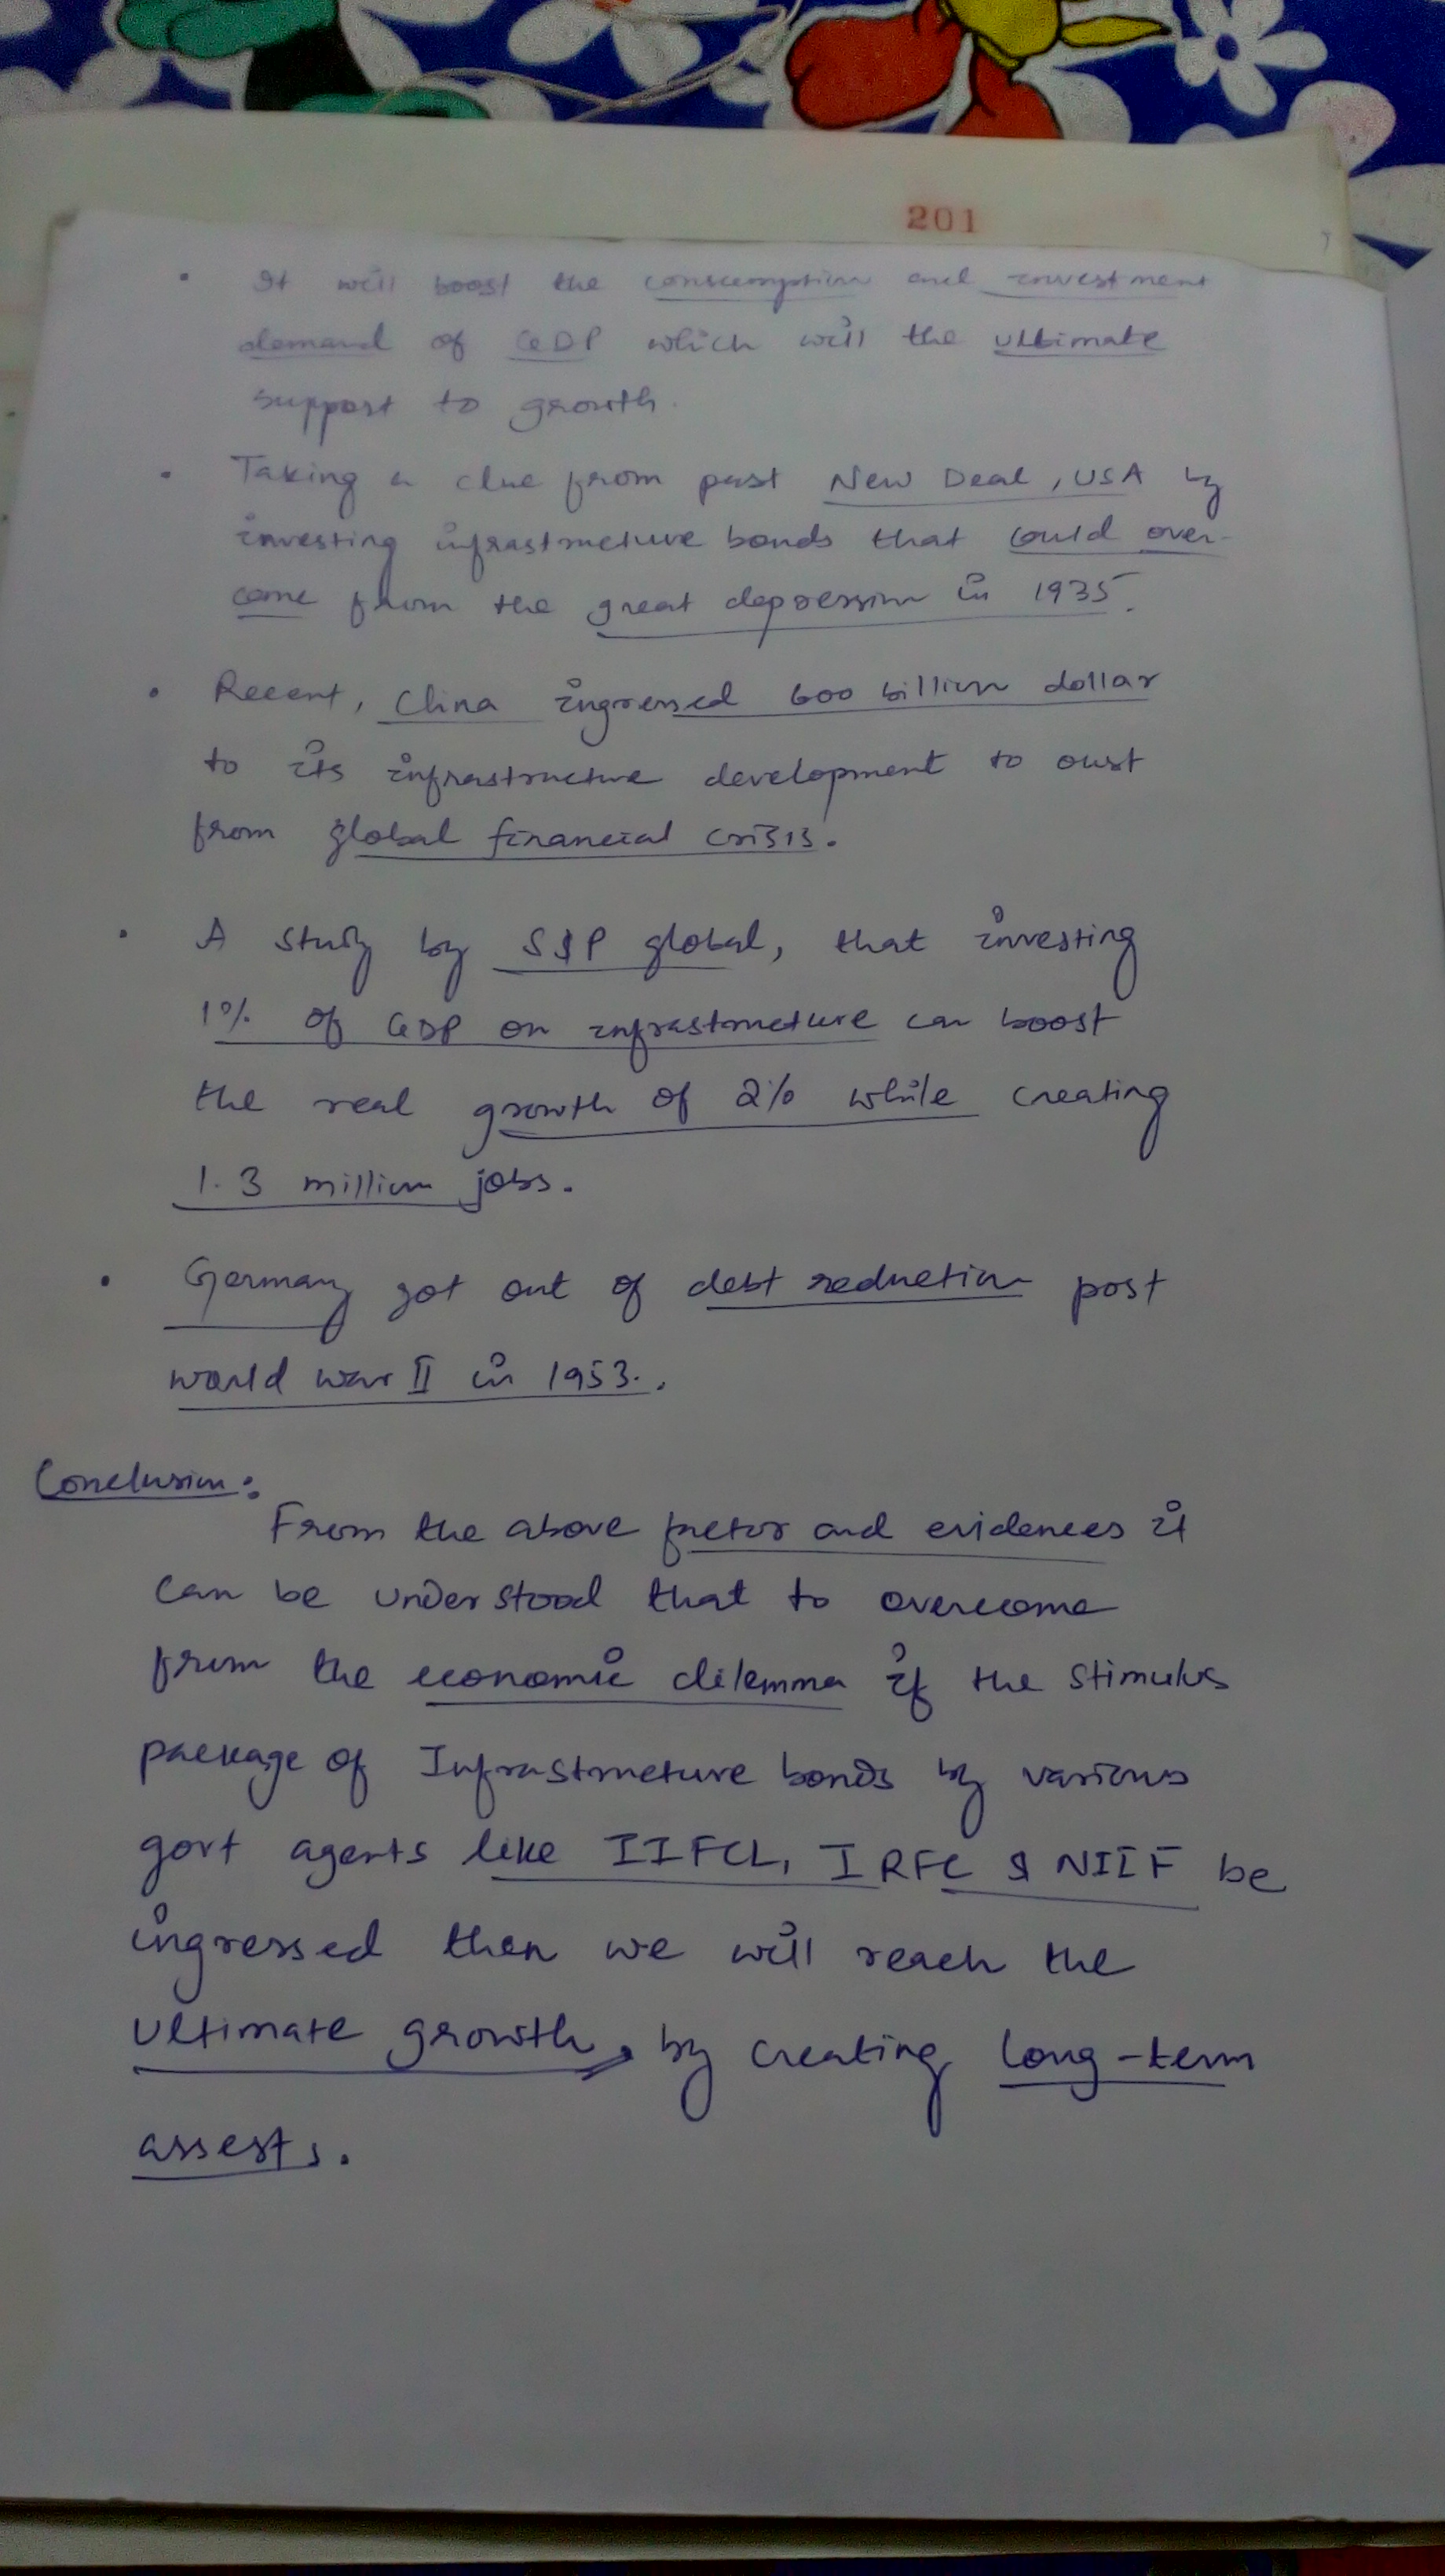 201
• It will boost the consumption and investment
demand of GDP which will the ultimate
support to growth.
• Taking a clue from past New Deal, USA by
investing infrastructure bonds that could over-
come from the great depression in 1935.
• Recent, China ingressed 600 billion dollar
to its infrastructure development to oust
from global financial crisis.
• A study by S&P global, that investing
1% of GDP on infrastructure can boost
the real growth of 2% while creating
1.3 million jobs.
• Germany got out of debt reduction post
world war II in 1953.
Conclusion:
From the above factor and evidences it
can be understood that to overcome
from the economic dilemma if the stimulus
package of Infrastructure bonds by various
govt agents like IIFCL, IRFC & NIIF be
ingressed then we will reach the
ultimate growth, by creating long-term
assests.